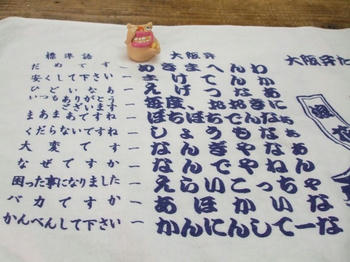 標準語 大阪弁
だめです ー あきまへんわ
安くして下さい ー まけてんか
ひどいなあ ー えげつなぁ
いつもありがとう
ございます ー 毎度、おおきに
まあまあですね ー ぼちぼちでんなぁ
くだらないですね ー しょうもなぁ
大変です ー なんぎやなぁ
なぜですか ー なんでやねん
困った事になりました ー えらいこっちゃ
バカですか ー あほかいな
かんべんして下さい ー かんにんしてーな
大阪弁た